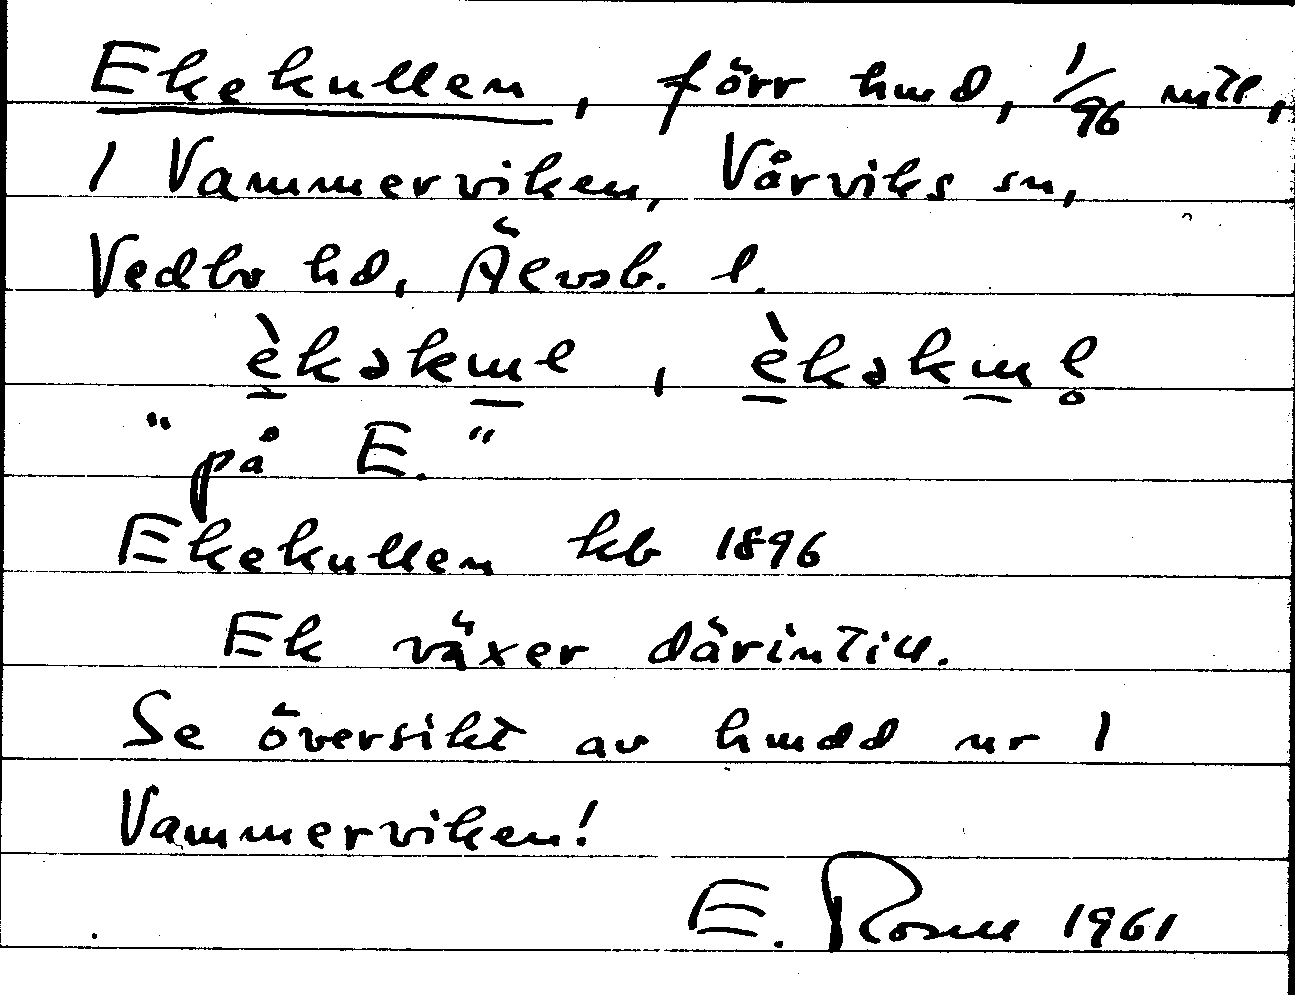 Ekekullen, förr hmd, 1/96 mtl,
1 Vammerviken, Vårviks sn,
Vedbo hd, Älvsb. l.
"på E."
Ekekullen kb 1896
Ek växer därintill.
Se översikt av hmdd nr 1
Vammerviken!
E. Rosell 1961